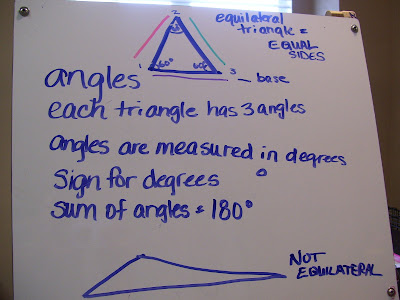 equilateral
triangle =
EQUAL
SIDES
2
60°
1
60°
60°
3
base
angles
each triangle has 3 angles
angles are measured in degrees
Sign for degrees °
sum of angles = 180°
NOT
EQUILATERAL